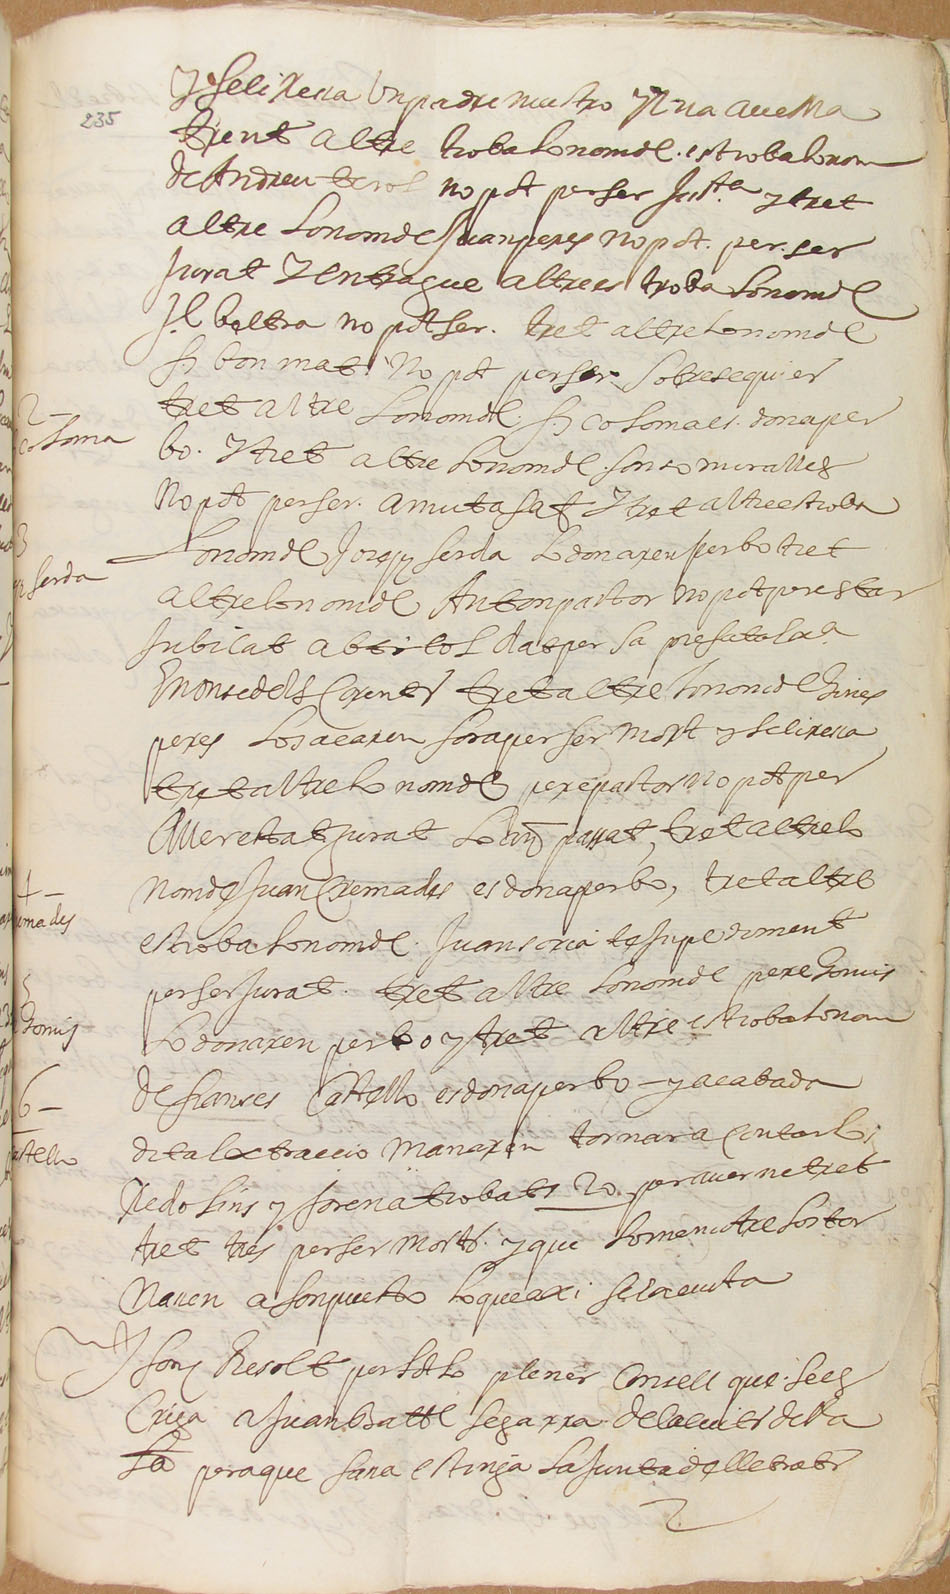 235
y se li resa Un padre nuestro y Una ave Ma
trent altre troba lo nom de es troba lo nom
de Andreu terol no pot per ser Justa y tret
altre lo nom de Juan peres no pot per ser
Jurat y en trague altre es troba lo nom de
Jl beltra no pot ser. tret altre lo nom de
fr bonmati No pot per ser sobresequier
tret altre lo nom de fr coloma es dona per
2
coloma
bo. y tret altre lo nom de miralles
No pot per ser amutasaf y tret altre es troba
3
serda
lo nom de Josep serda lo donaren per bo tret
altre lo nom de Anton pastor no pot per estar
Jubilat ab titol dat per sa
tret altre lo nom de Gines
peres lo sacaren fora per ser mort y se li resa
tret altre lo nom de pere pastor No pot per
aver estat jurat lo any passat, tret altre lo
4
nom de Juan Cremades es dona per bo, tret altre
mades
es troba lo nom de Juan soria te Inpediment
per ser Jurat. tret altre lo nom de pere Gomis
5
Gomis
lo donaren per bo y tret altre es troba lo nom
6
de franses Castello es dona per bo – y acabada
stello
dita extraccio manaren tornar a contar los
Redolins y foren atrobats 20 per aver ne tret
tret tres per ser morts. y que lo menut re los tor
naren a son puesto lo que axi se executa
fonc Resolt per lo dit plener Consell que se es
criga a Juan Batt segarra de la ciutt de Va
la pera que fasa es tinga la Junta de lletrats